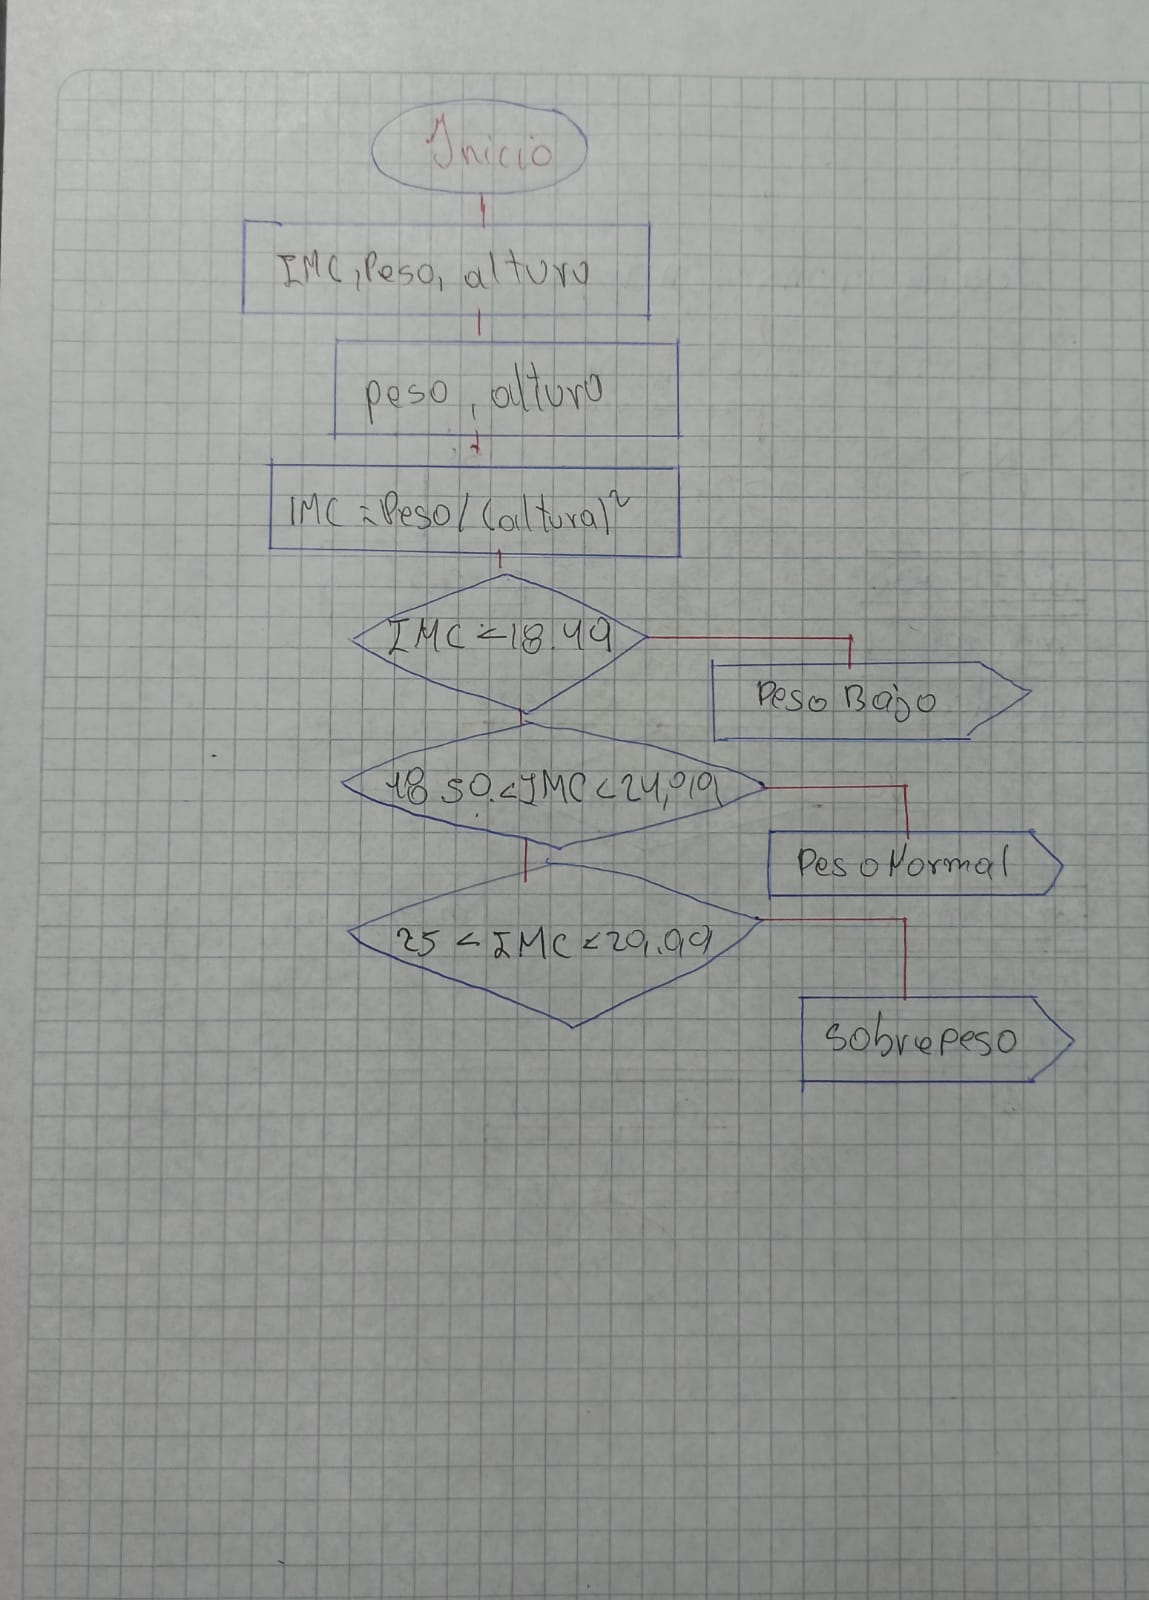 Inicio
IMC, Peso, altura
peso, altura
IMC = Peso/(altura)²
IMC <= 18.49
Peso Bajo
18.50 < IMC < 24,99
Peso Normal
25 < IMC < 29.99
Sobrepeso